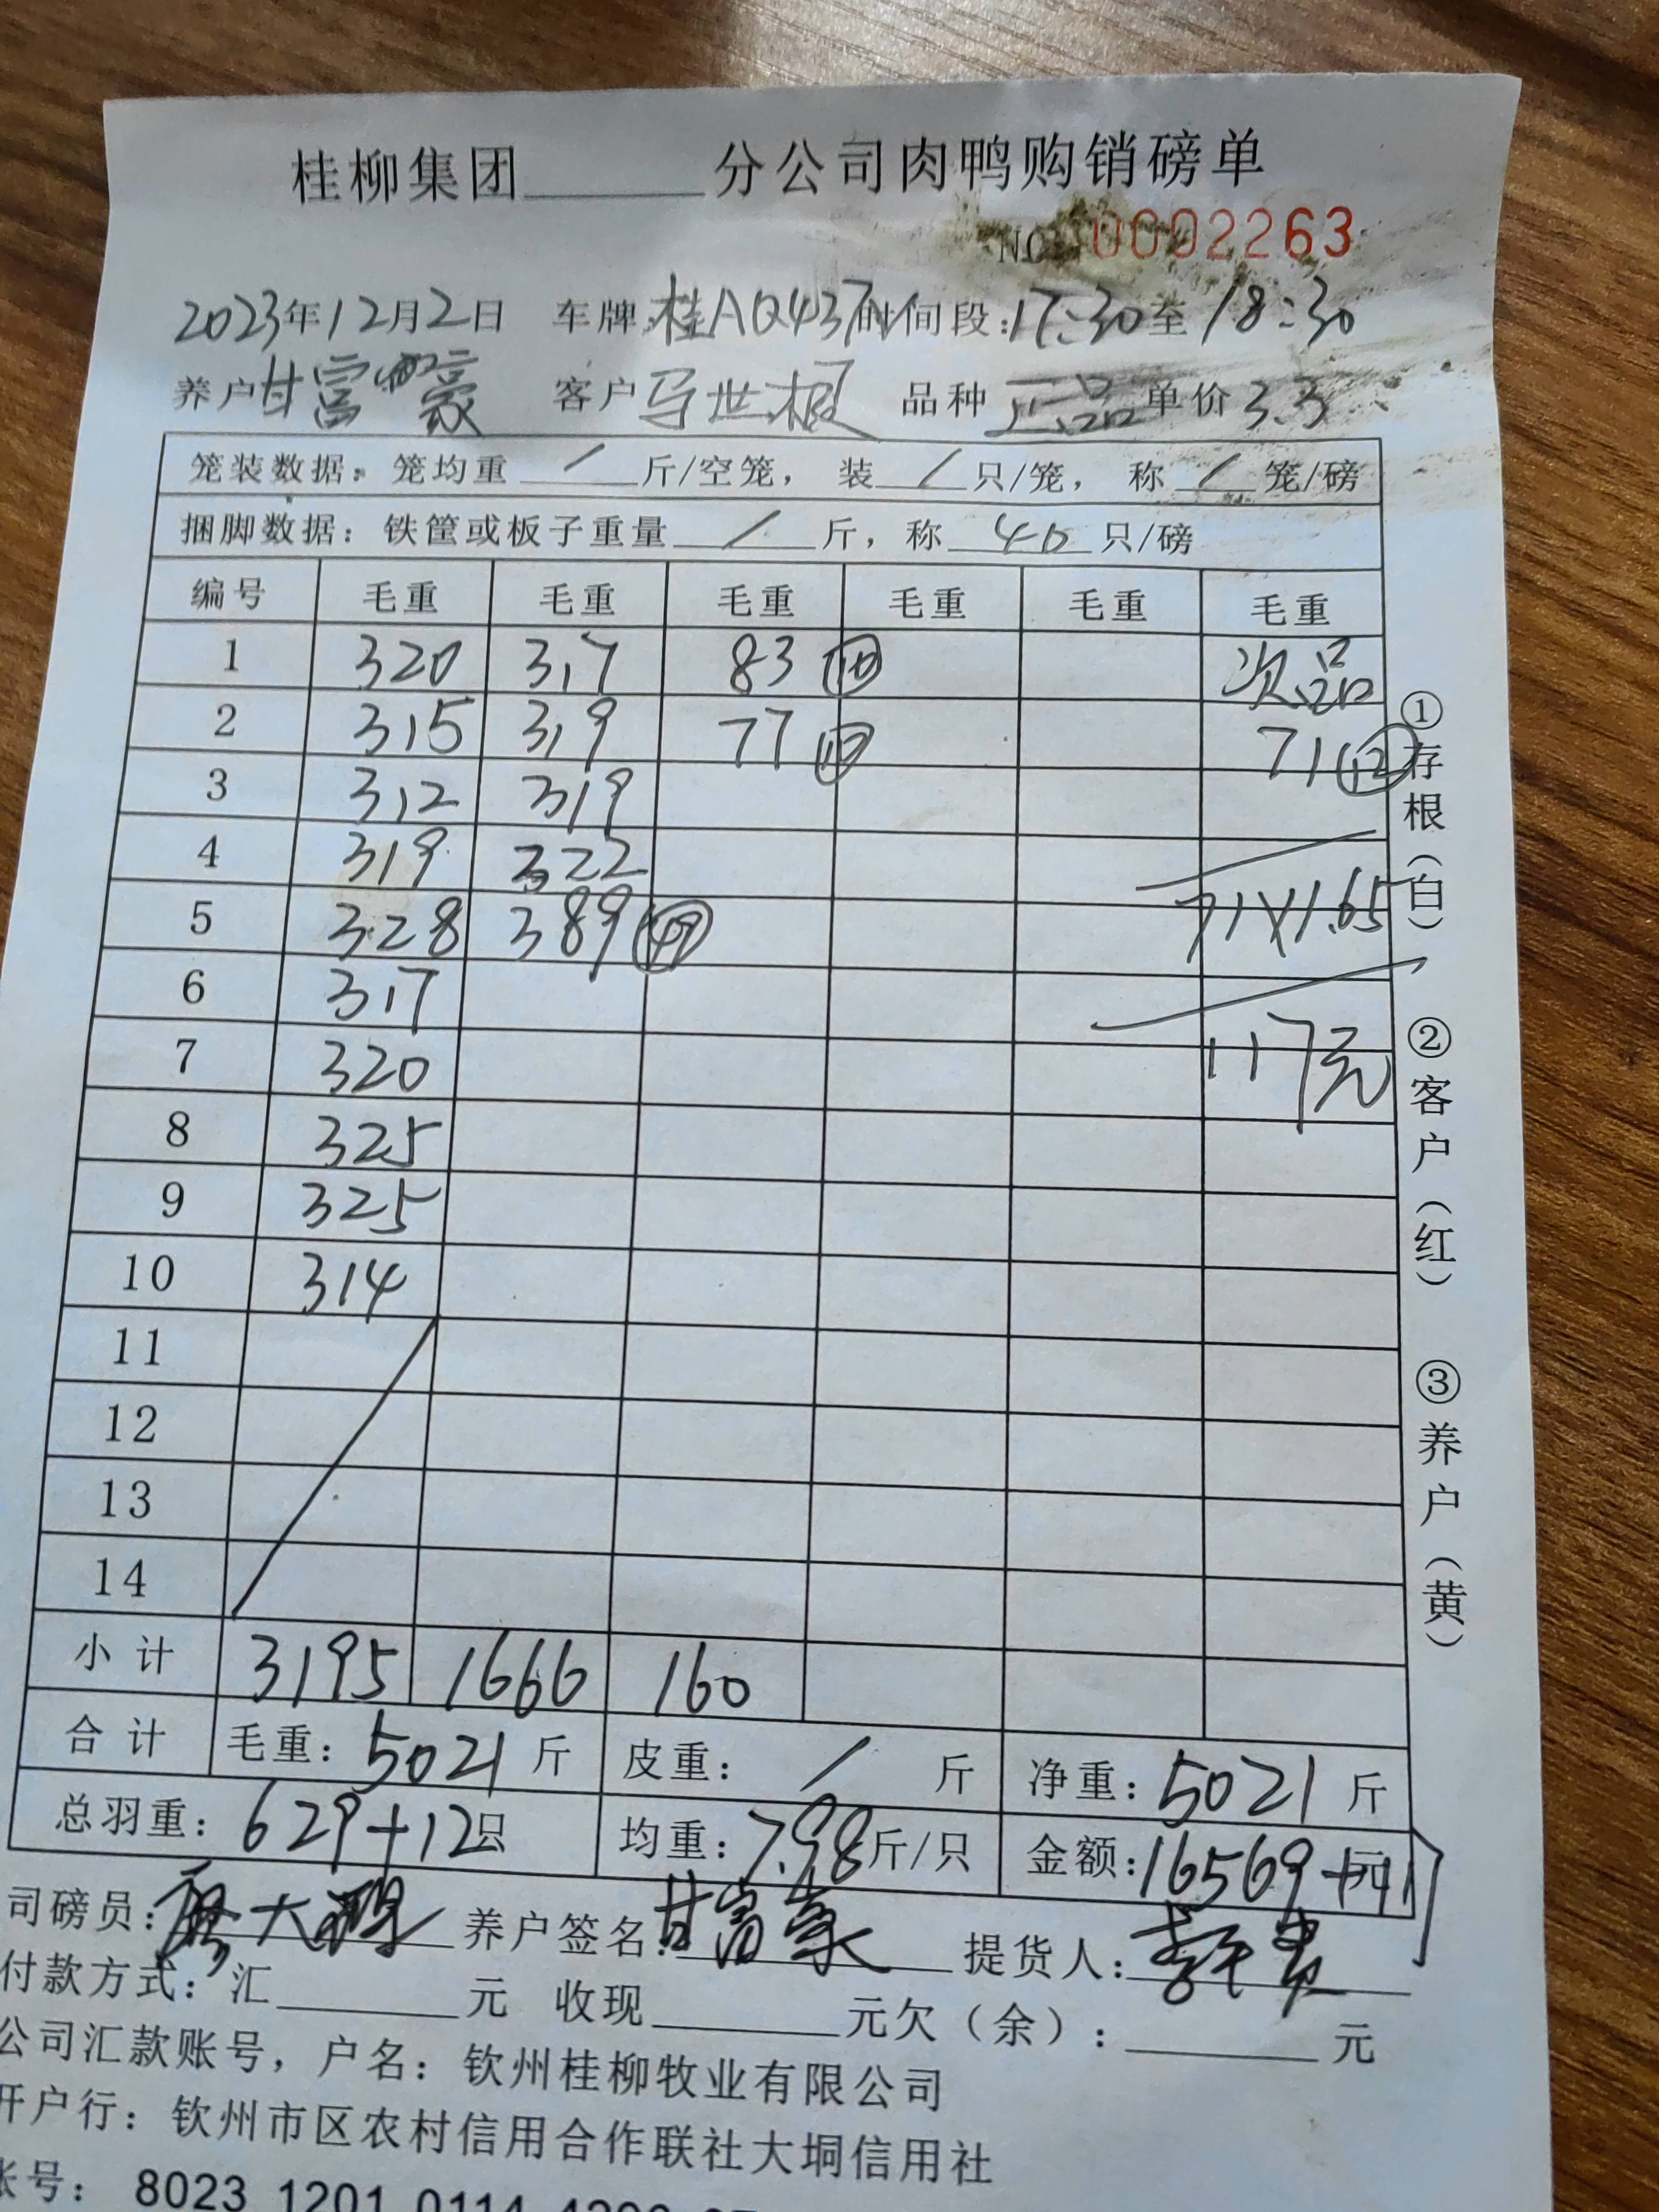 桂柳集团______分公司肉鸭购销磅单
NO 0002263
2023年12月2日 车牌:桂AQ437N 时间段:17:30至18:30
养户 甘富豪 客户 马世根 品种 正品 单价 3.3
笼装数据:笼均重 / 斤/空笼, 装 / 只/笼, 称 / 笼/磅
捆脚数据:铁筐或板子重量 / 斤,称 40 只/磅
编号 毛重 毛重 毛重 毛重 毛重 毛重
1 320 317 83 ⑩ 次品
2 315 319 77 ⑩ 71 ⑫
3 312 319
4 319 322
5 328 389 ㊾ 71×1.65
6 317
7 320 117元
8 325
9 325
10 314
11
12
13
14
小计 3195 1666 160
合计 毛重:5021斤 皮重: / 斤 净重:5021斤
总羽重:629+12只 均重:7.98斤/只 金额:16569+117元
司磅员: 养户签名:甘富豪 提货人:
付款方式:汇______元 收现______元欠(余):______元
公司汇款账号,户名:钦州桂柳牧业有限公司
开户行:钦州市区农村信用合作联社大垌信用社
账号: 8023 1201 0114
①存根(白) ②客户(红) ③养户(黄)